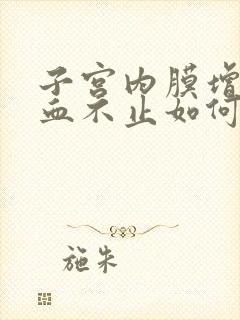 子宫内膜增
血不止如何
施朱